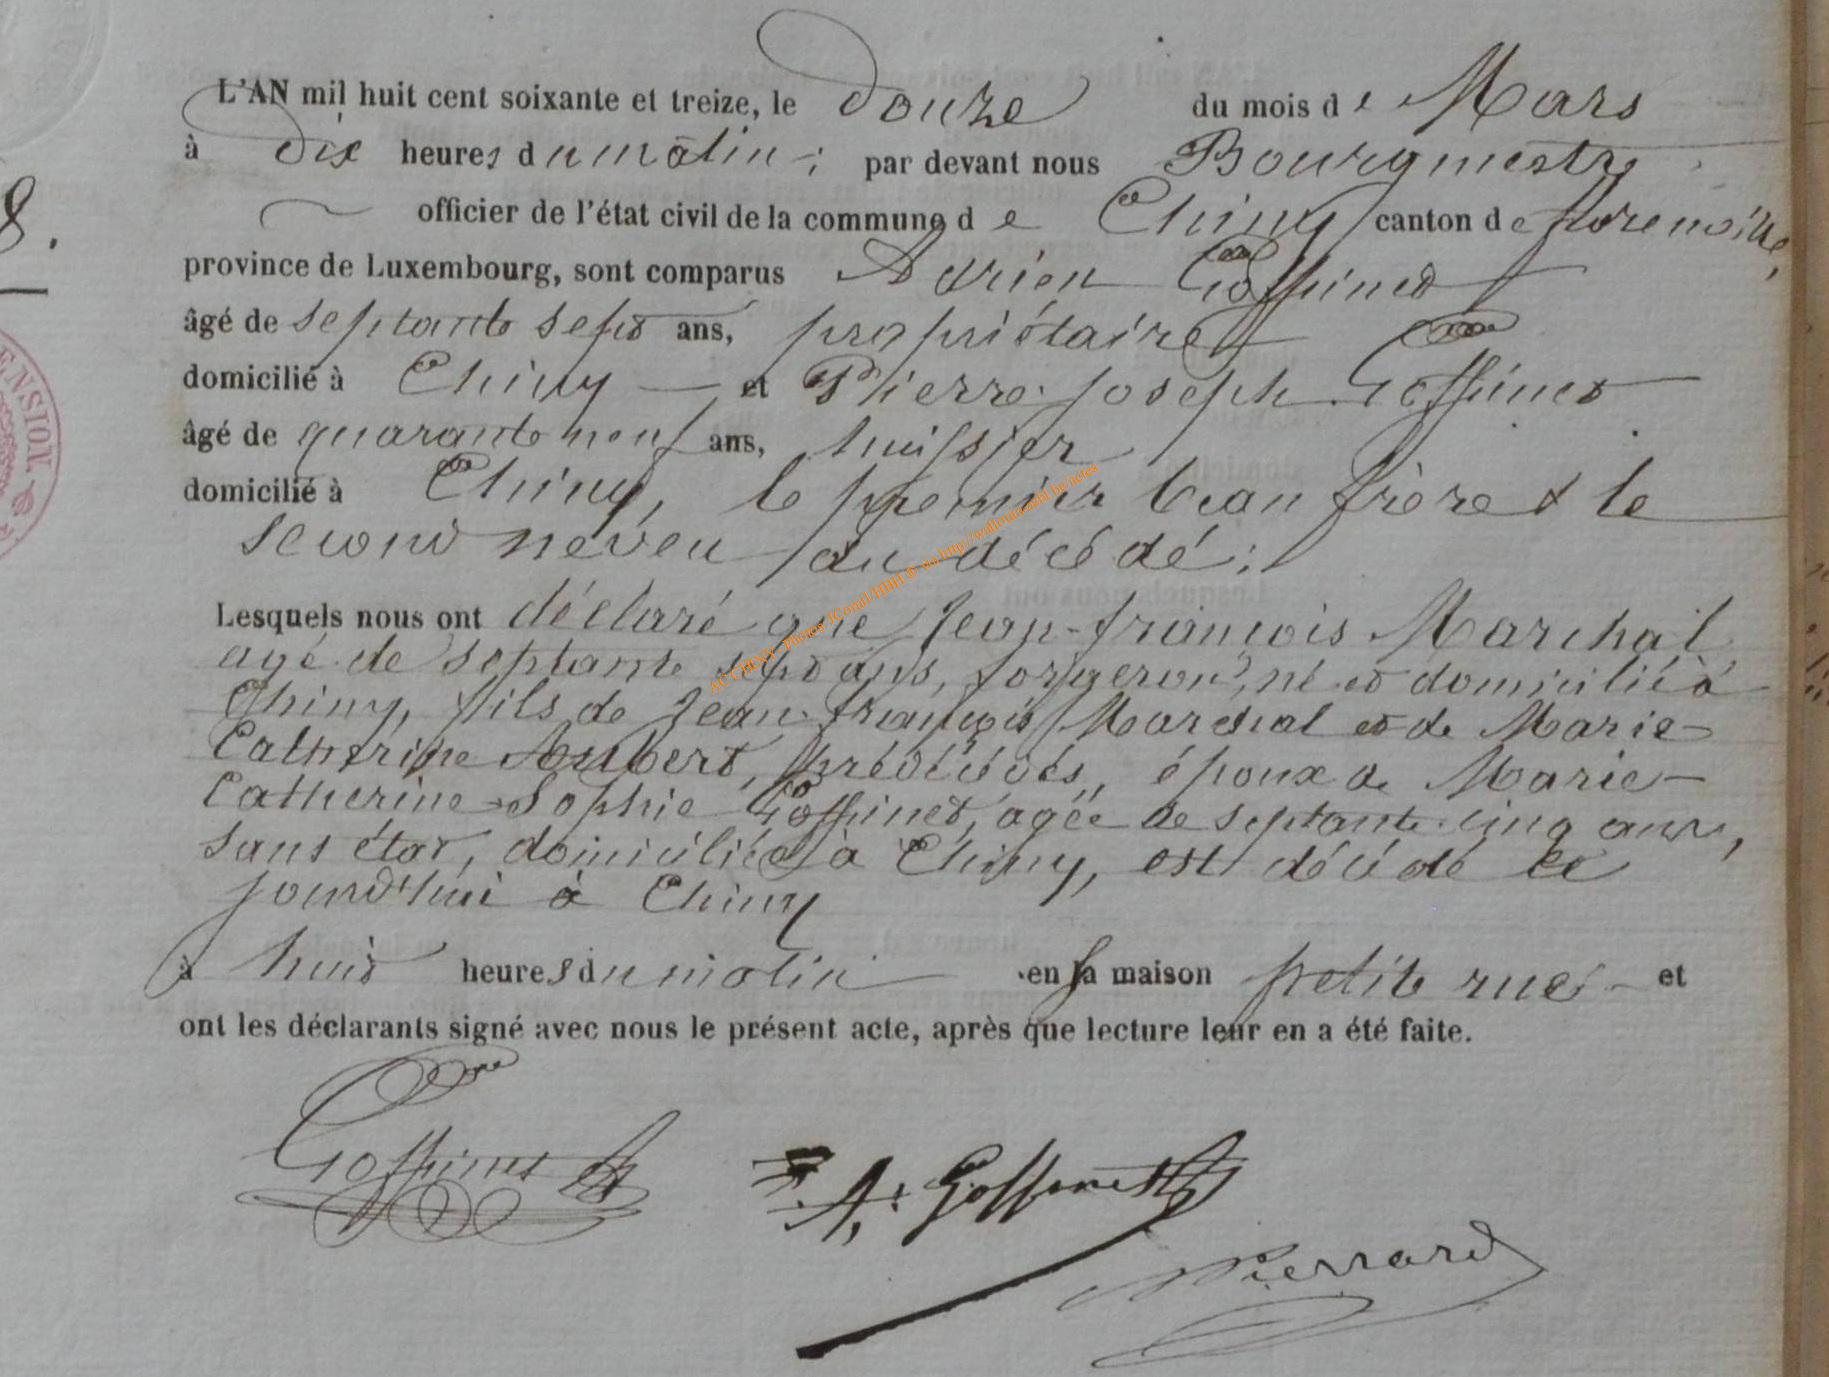 L'AN mil huit cent soixante et treize, le douze du mois de Mars
à dix heures du matin; par devant nous Bourgmestre
8.
officier de l'état civil de la commune de Chiny canton de florenville,
province de Luxembourg, sont comparus Adrien Goffinet
âgé de septante sept ans, propriétaire
domicilié à Chiny et Pierre-Joseph Goffinet
âgé de quarante neuf ans, huissier
ENSION
domicilié à Chiny, le premier beau frère & le
second neveu du décédé;
ACCHINY - Photos JConal/HDJLE via http://walloniecahl.be/actes
Lesquels nous ont déclaré que Jean-françois Marchal
agé de septante sept ans, forgeron, né et domicilié à
Chiny, fils de Jean-françois Marchal et de Marie
Catherine Aubert, prédécédés, époux de Marie-
Catherine-Sophie Goffinet, agée de septante cinq ans,
sans état, domiciliée à Chiny, est décédé ce
jourd'hui à Chiny
à huit heures du matin en sa maison petite rue et
ont les déclarants signé avec nous le présent acte, après que lecture leur en a été faite.
Goffinet A. Goffinet
Pierrard